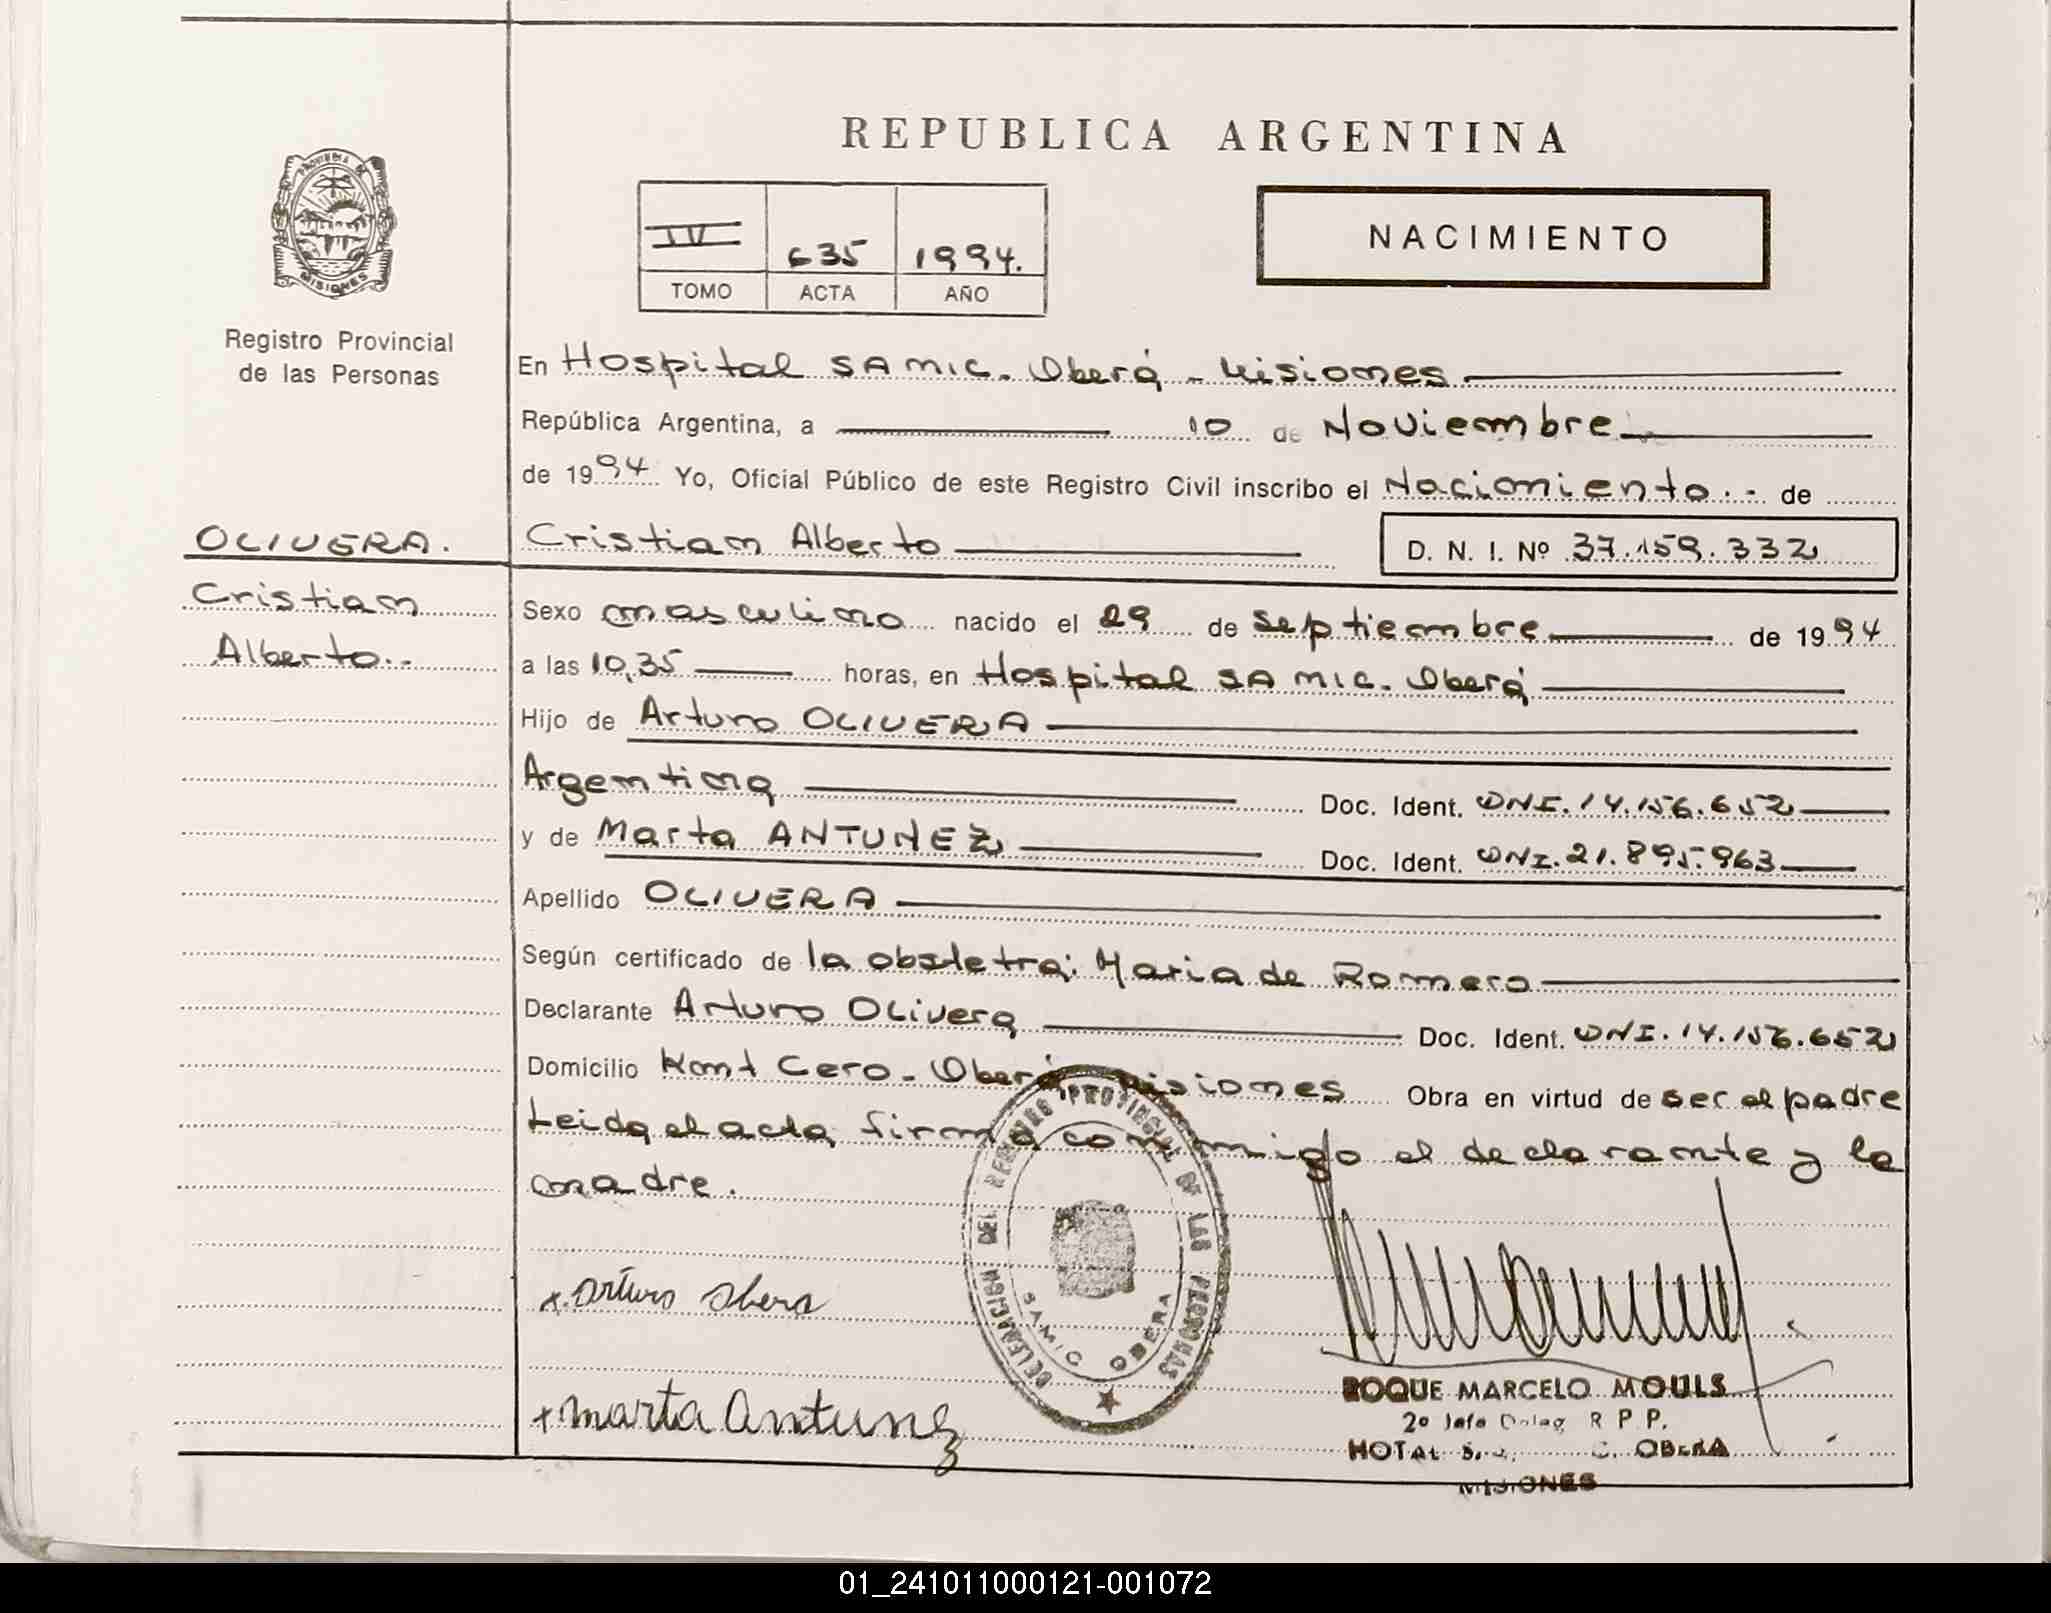 REPUBLICA ARGENTINA
PROVINCIA DE
MISIONES
Registro Provincial
de las Personas
IV 635 1994.
TOMO ACTA AÑO
NACIMIENTO
En Hospital SAMIC. Oberá - Misiones
República Argentina, a 10 de Noviembre
de 1994 Yo, Oficial Público de este Registro Civil inscribo el Nacimiento.- de
OLIVERA.
Cristian
Alberto.-
Cristian Alberto D. N. I. Nº 37.159.332
Sexo masculino nacido el 29 de Septiembre de 1994
a las 10,35 horas, en Hospital SAMIC. Oberá
Hijo de Arturo OLIVERA
Argentina Doc. Ident. DNI. 14.156.652
y de Marta ANTUNEZ Doc. Ident. DNI. 21.895.963
Apellido OLIVERA
Según certificado de la obstetra: Maria de Romero
Declarante Arturo Olivera Doc. Ident. DNI. 14.156.652
Domicilio Cero - Oberá Misiones Obra en virtud de ser el padre
Leida el acta, firma conmigo el declarante y la
madre.
DELEGACION DEL REGISTRO PROVINCIAL DE LAS PERSONAS
SAMIC OBERA
x. arturo
+ marta antunez
ROQUE MARCELO MOULS
2º Jefe Deleg R P P.
OBERA
MISIONES
01_241011000121-001072